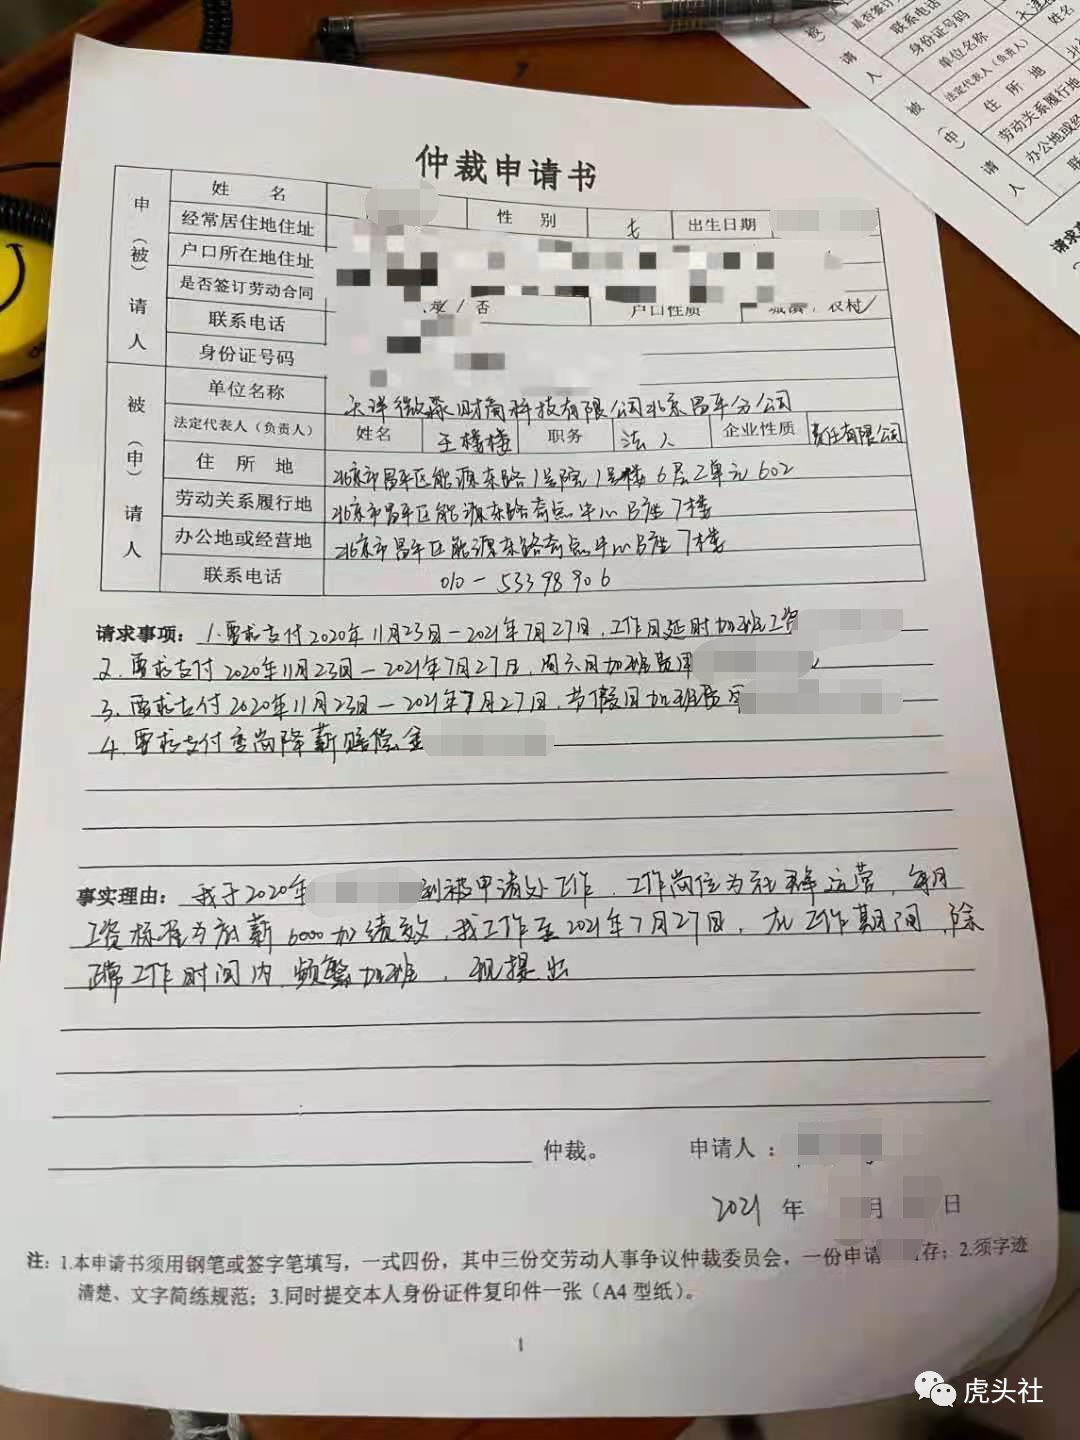 仲裁申请书
申(被)请人
姓 名
性 别
出生日期
经常居住地住址
户口所在地住址
是否签订劳动合同
是 / 否
户口性质
城镇 / 农村
联系电话
身份证号码
被(申)请人
单位名称
天洋微淼财商科技有限公司北京昌平分公司
法定代表人(负责人)
姓名
王楼楼
职务
法人
企业性质
责任有限公司
住 所 地
北京市昌平区能源东路1号院1号楼6层2单元602
劳动关系履行地
北京市昌平区能源东路奇点中心B座7楼
办公地或经营地
北京市昌平区能源东路奇点中心B座7楼
联系电话
010-53398906
请求事项: 1.要求支付2020年11月23日—2021年7月27日,工作日延时加班工资
2.要求支付2020年11月23日—2021年7月27日,周六日加班费用
3.要求支付2020年11月23日—2021年7月27日,节假日加班费用
4.要求支付变岗降薪赔偿金
事实理由: 我于2020年 到被申请处工作,工作岗位为社群运营,每月
工资标准为底薪6000加绩效,我工作至2021年7月27日,在工作期间,除
正常工作时间内,频繁加班,现提出
仲裁。
申请人:
2021 年 月 日
注: 1.本申请书须用钢笔或签字笔填写,一式四份,其中三份交劳动人事争议仲裁委员会,一份申请 存;2.须字迹
清楚、文字简练规范;3.同时提交本人身份证件复印件一张(A4型纸)。
1
是否签订
联系电话
身份证号码
单位名称
姓名
法定代表人(负责人)
住 所 地
劳动关系履行地
办公地或经
被(申)请人
请求事
虎头社